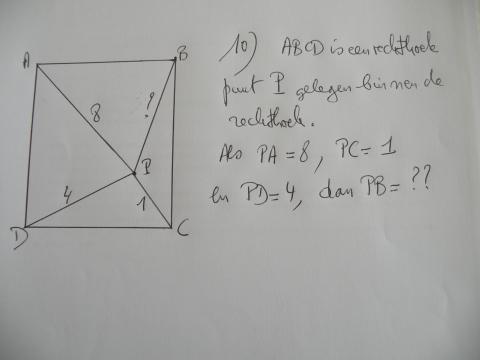 A
B
8
?
P
4
1
D
C
10) ABCD is een rechthoek
punt P gelegen binnen de
rechthoek.
Als PA = 8, PC = 1
en PD = 4, dan PB = ??